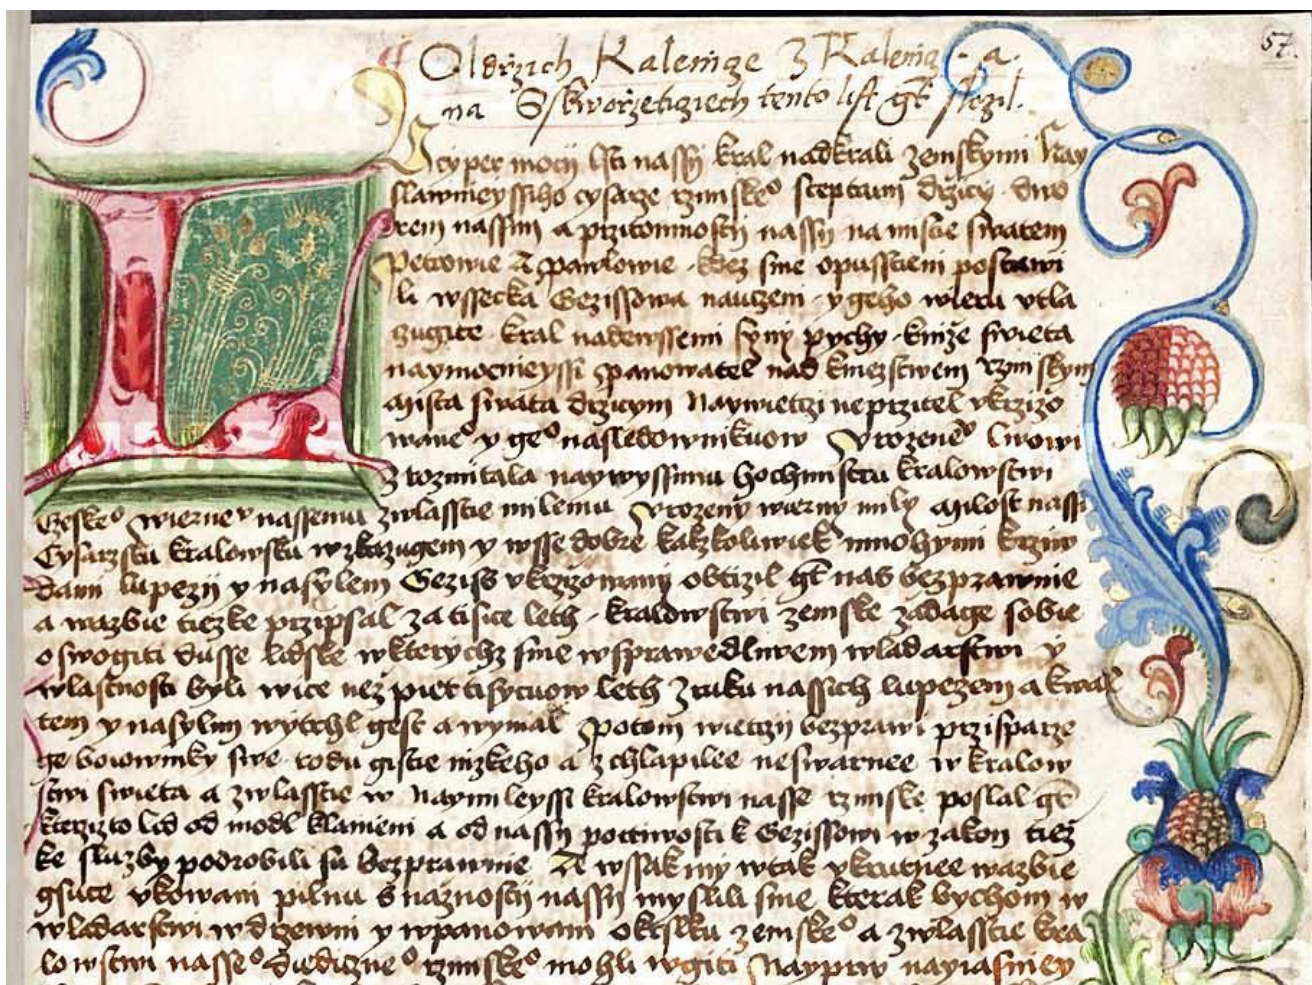 57.
Oldrzich Kalenicze z Kalenicz · a ·
na Skworzeticziech tento list gt slozil.
Lucyper moczy lsti nassy kral nad krali zemskymi Nay
slawnieyssiho cysarze rzimskeo sceptrum drziczy · dwo
rem nassim a przitomnosti nassy na miste swatem
Petrowie A Pawlowie · kdez sme opusstieni postawi
li wssecka Gezissowa nauczeni · y geho wieru vtla
czugite · kral nade wssemi syny pychy · knize swieta
naymocnieyssi Panowatel nad kniezstwem Rzimskym
Mista swata drzicym Naywietczi neprzitel vkrzizo
wane y geo nasledownikuow Vrozenev Lwowi
z rozmitala naywyssimu hochmistru kralowstwi
Czeskeo wiernev nassemu zwlasstie milemu Vrozeny wierny mily Milost nassi
Cysarzsku kralowsku wzkazugem y wsse dobre kakzkoliwiek mnohymi krziw
dami lupezy y nasylem Geziss vkrzizowany obtizil gt nas bezprawnie
a wazbie tiezke przipsal za tisice leth · kralowstwi zemske zadage sobie
oswogiti dusse lidske w kterychz sme w sprawedlnwem wladarstwi y
wlastnosti byli wice nez piet tisycuow leth z ruku nassich lupezem a kwal
tem y nasylim wytrhl gest a wymal Potom wietczy bezprawi przisparze
ge bojowniky swe · rodu gistie nizkeho a z chlapilee neswarnee w kralow
stwi swieta a zwlasstie w Naymileyssi kralowstwi nasse rzimske poslal gt
kterzizto lid od modl klanieni a od nassy pocztiwosti k Gezissowi w zakon tiez
ke sluzby podrobili su bezprawnie A wssak my w tak vkrutnee wazbie
gsuce vkowani pilnu snaznosti nassy myslili sme kterak bychom w
wladarstwi w drzewni y w panowani okrslku zemskeo a zwlasstie kra
lowstwi nasseo diediczneo rzimskeo mohli wgiti Nayprw nayiasniey